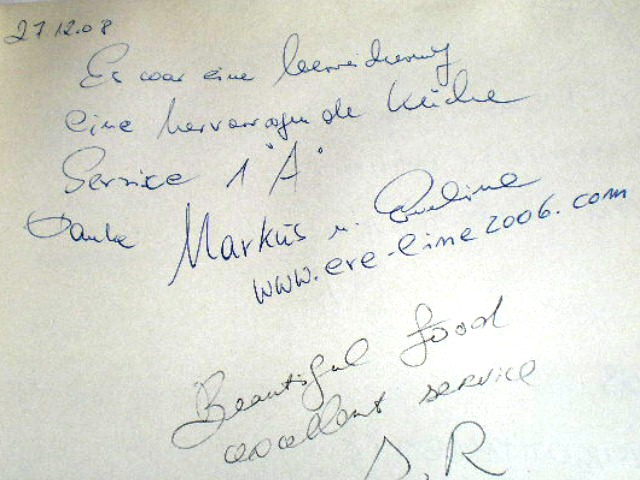 27.12.08
Es war eine bereicherung
eine hervorragende Küche
Service 1 "A"
Danke Markus u. Eveline
www.eve-line2006.com
Beautiful food
excellent service
S.R